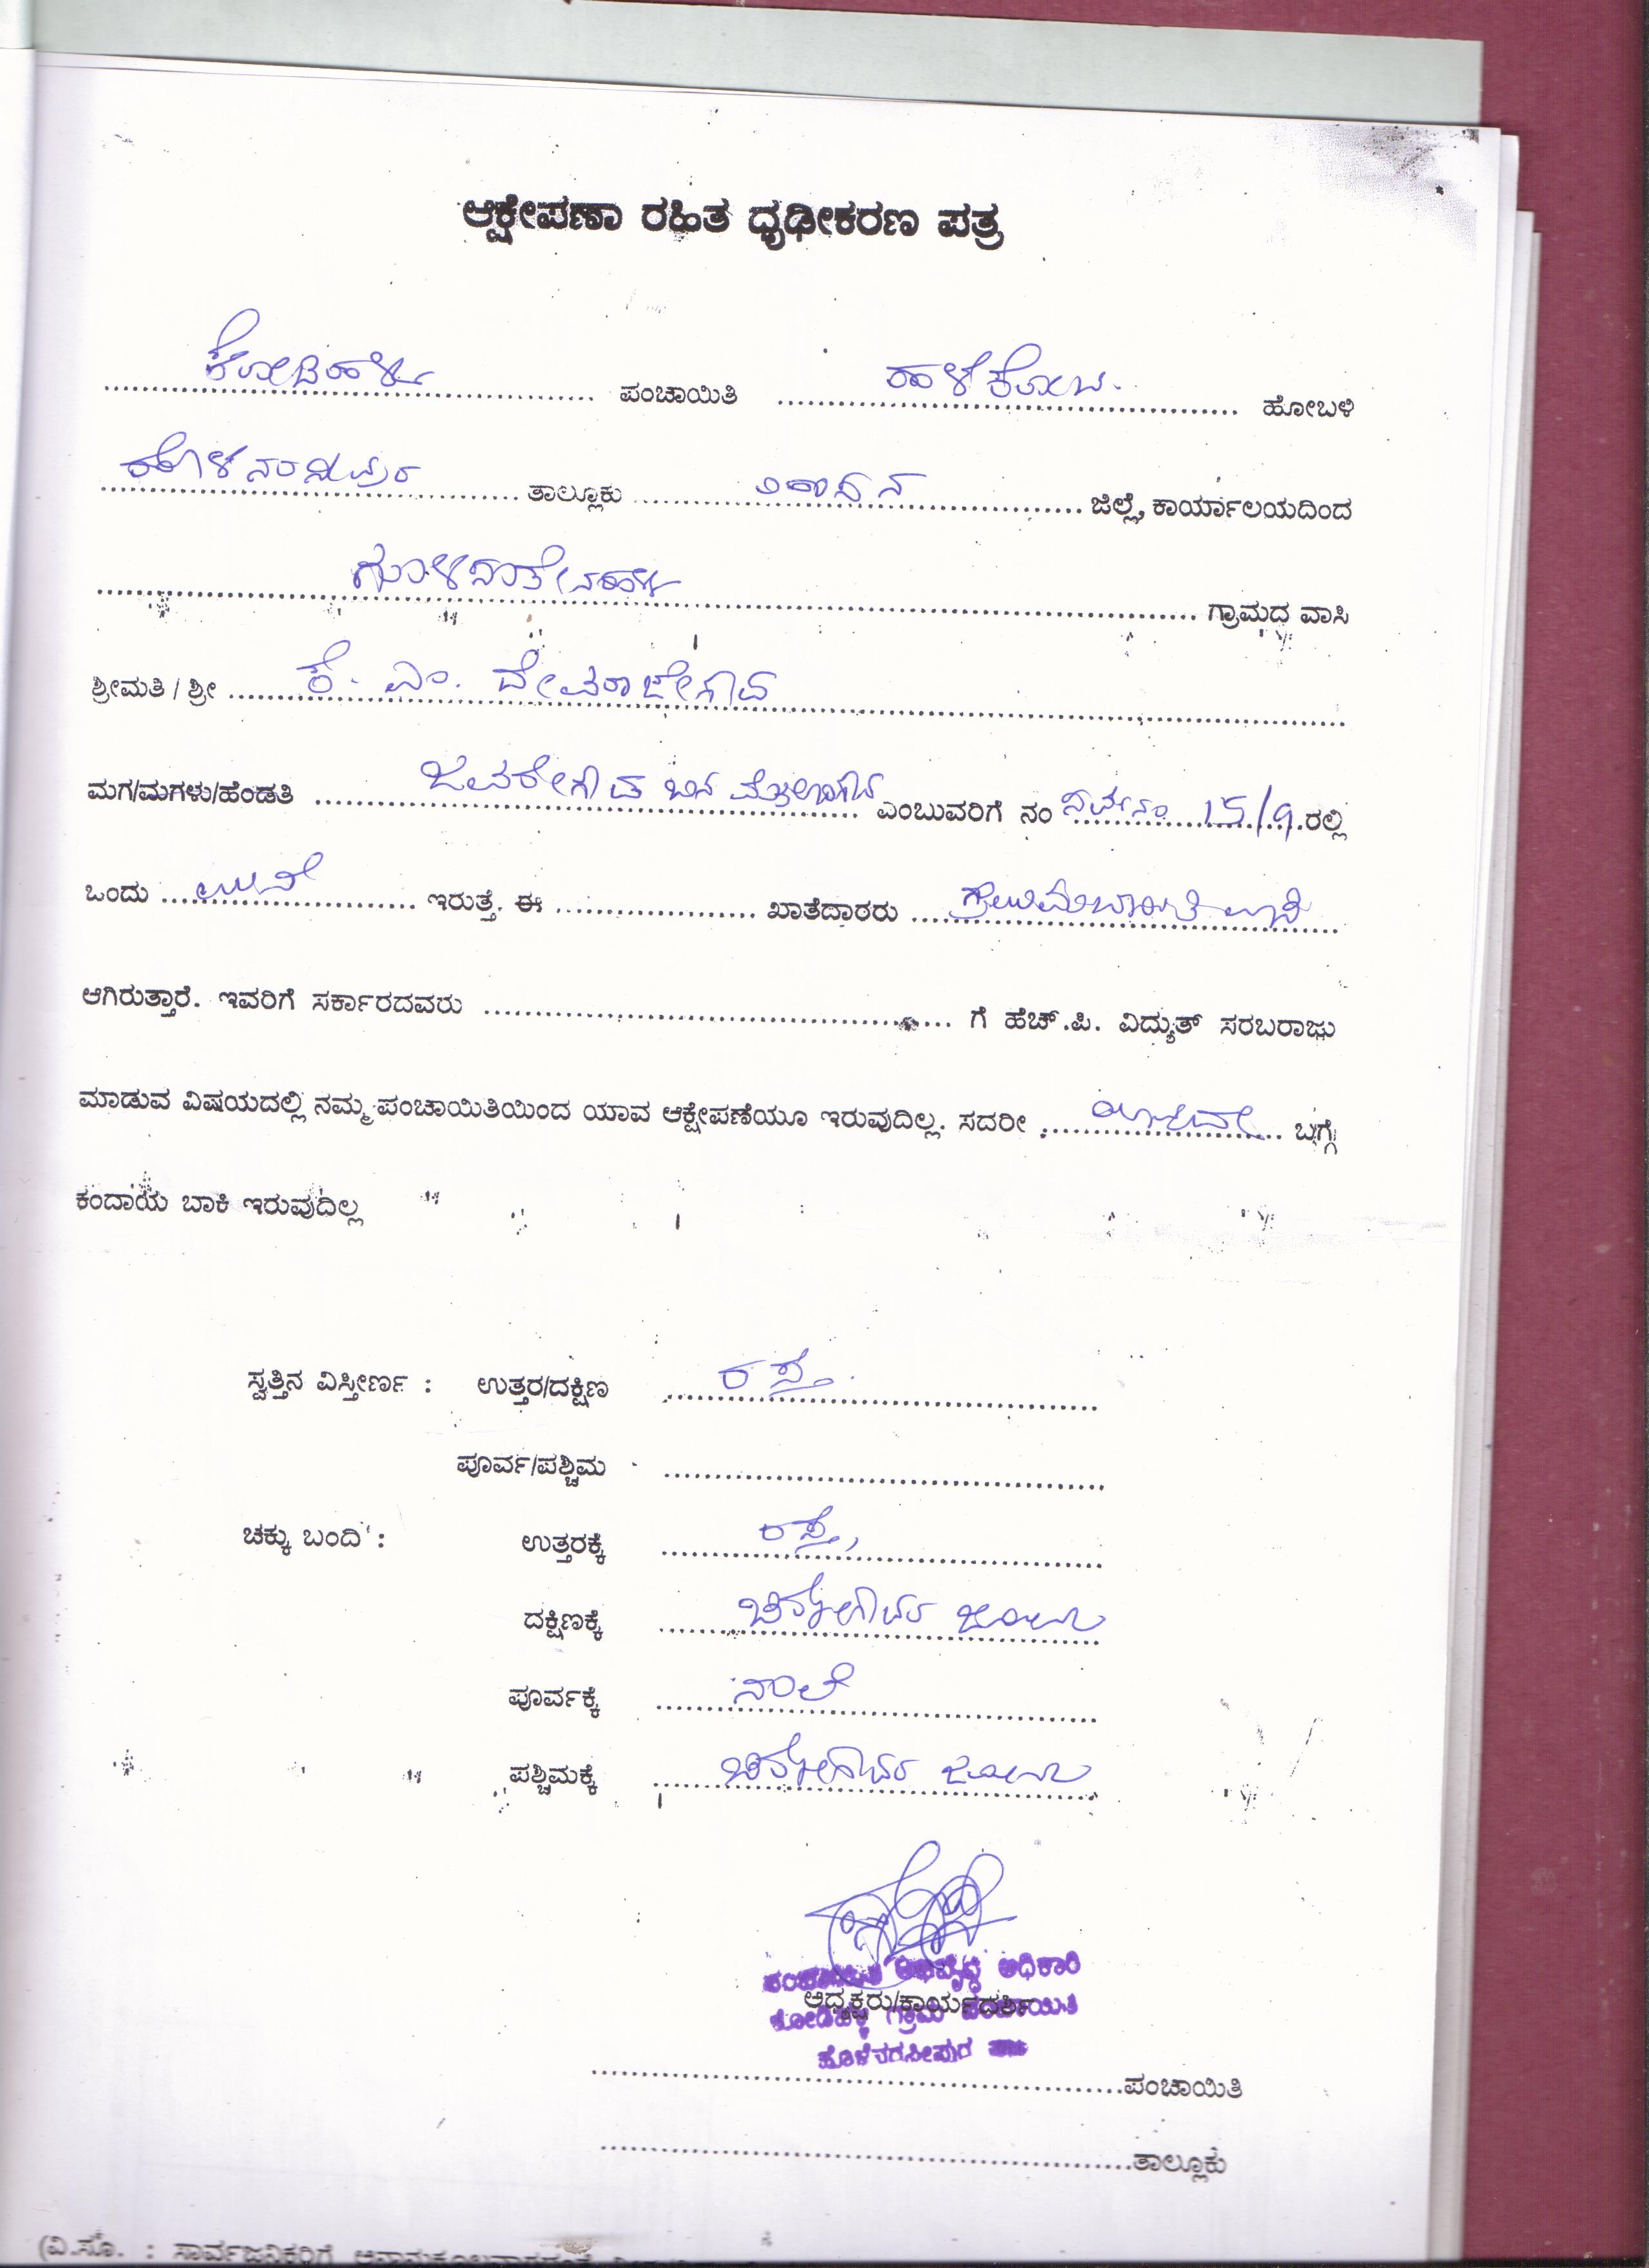 ಆಕ್ಷೇಪಣಾ ರಹಿತ ಧೃಢೀಕರಣ ಪತ್ರ
ಕೋಡಿಹಳ್ಳಿ ಪಂಚಾಯಿತಿ ಹಳೇಕೋಟೆ ಹೋಬಳಿ
ಹೊಳೆನರಸೀಪುರ ತಾಲ್ಲೂಕು ಹಾಸನ ಜಿಲ್ಲೆ, ಕಾರ್ಯಾಲಯದಿಂದ
ಗ್ರಾಮದ ವಾಸಿ
ಶ್ರೀಮತಿ / ಶ್ರೀ ಕೆ. ಎಂ. ದೇವರಾಜೇಗೌಡ
ಮಗ/ಮಗಳು/ಹೆಂಡತಿ ಜವರೇಗೌಡ ಬಿನ್ ಎಂಬುವರಿಗೆ ನಂ 15/9 ರಲ್ಲಿ
ಒಂದು ಇರುತ್ತೆ. ಈ ಖಾತೆದಾರರು
ಆಗಿರುತ್ತಾರೆ. ಇವರಿಗೆ ಸರ್ಕಾರದವರು ಗೆ ಹೆಚ್.ಪಿ. ವಿದ್ಯುತ್ ಸರಬರಾಜು
ಮಾಡುವ ವಿಷಯದಲ್ಲಿ ನಮ್ಮ ಪಂಚಾಯಿತಿಯಿಂದ ಯಾವ ಆಕ್ಷೇಪಣೆಯೂ ಇರುವುದಿಲ್ಲ. ಸದರೀ ಬಗ್ಗೆ
ಕಂದಾಯ ಬಾಕಿ ಇರುವುದಿಲ್ಲ
ಸ್ವತ್ತಿನ ವಿಸ್ತೀರ್ಣ : ಉತ್ತರ/ದಕ್ಷಿಣ ರಸ್ತೆ
ಪೂರ್ವ/ಪಶ್ಚಿಮ
ಚಕ್ಕು ಬಂದಿ : ಉತ್ತರಕ್ಕೆ ರಸ್ತೆ,
ದಕ್ಷಿಣಕ್ಕೆ ಜಮೀನು
ಪೂರ್ವಕ್ಕೆ ನಾಲೆ
ಪಶ್ಚಿಮಕ್ಕೆ ಜಮೀನು
ಪಂಚಾಯಿತಿ ಅಭಿವೃದ್ಧಿ ಅಧಿಕಾರಿ
ಅಧ್ಯಕ್ಷರು/ಕಾರ್ಯದರ್ಶಿ
ಕೋಡಿಹಳ್ಳಿ ಗ್ರಾಮ ಪಂಚಾಯಿತಿ
ಹೊಳೆನರಸೀಪುರ
ಪಂಚಾಯಿತಿ
ತಾಲ್ಲೂಕು
(ವಿ.ಸೂ. : ಸಾರ್ವಜನಿಕರಿಗೆ